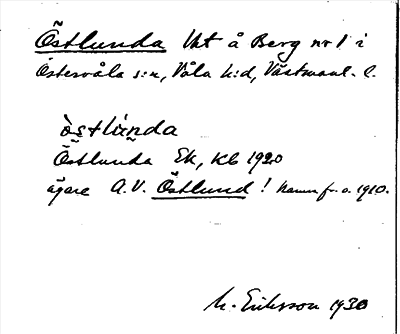 Östlunda lht å Berg nr 1 i
Östervåla s:n, Våla h:d, Västmanl. l.
òstlúnda
Östlunda Ek, Kb 1920
ägare A.V. Östlund! namn fr. o. 1910.
M. Eriksson 1930